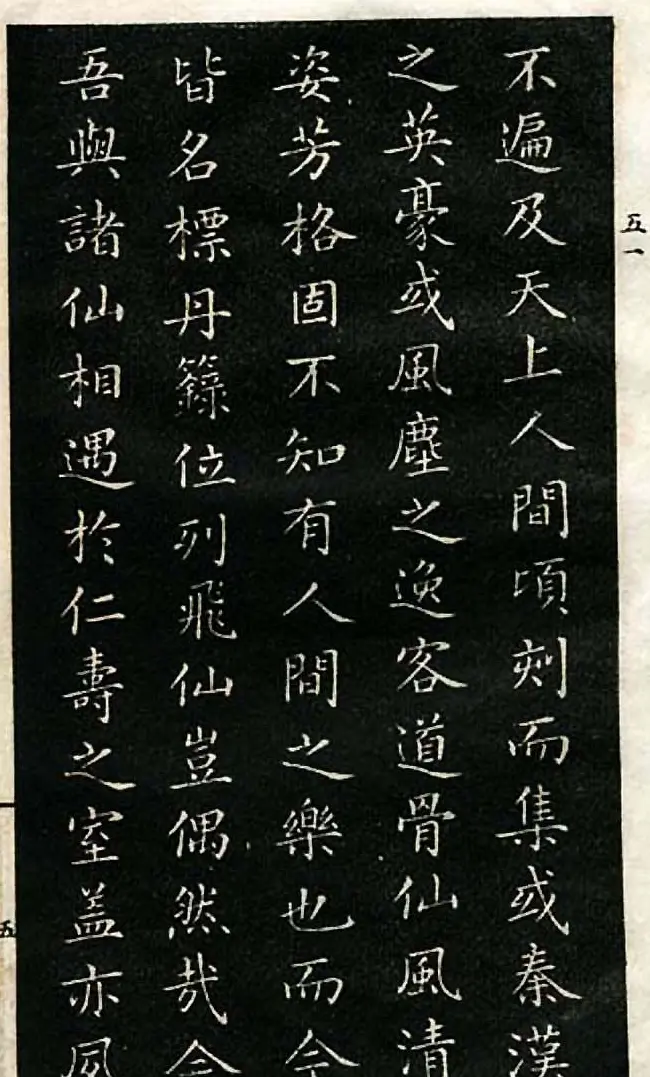 不遍及天上人間頃刻而集或秦漢
之英豪或風塵之逸客道骨仙風清
姿芳格固不知有人間之樂也而今
皆名標丹籙位列飛仙豈偶然哉今
吾與諸仙相遇於仁壽之室蓋亦夙
五一
五